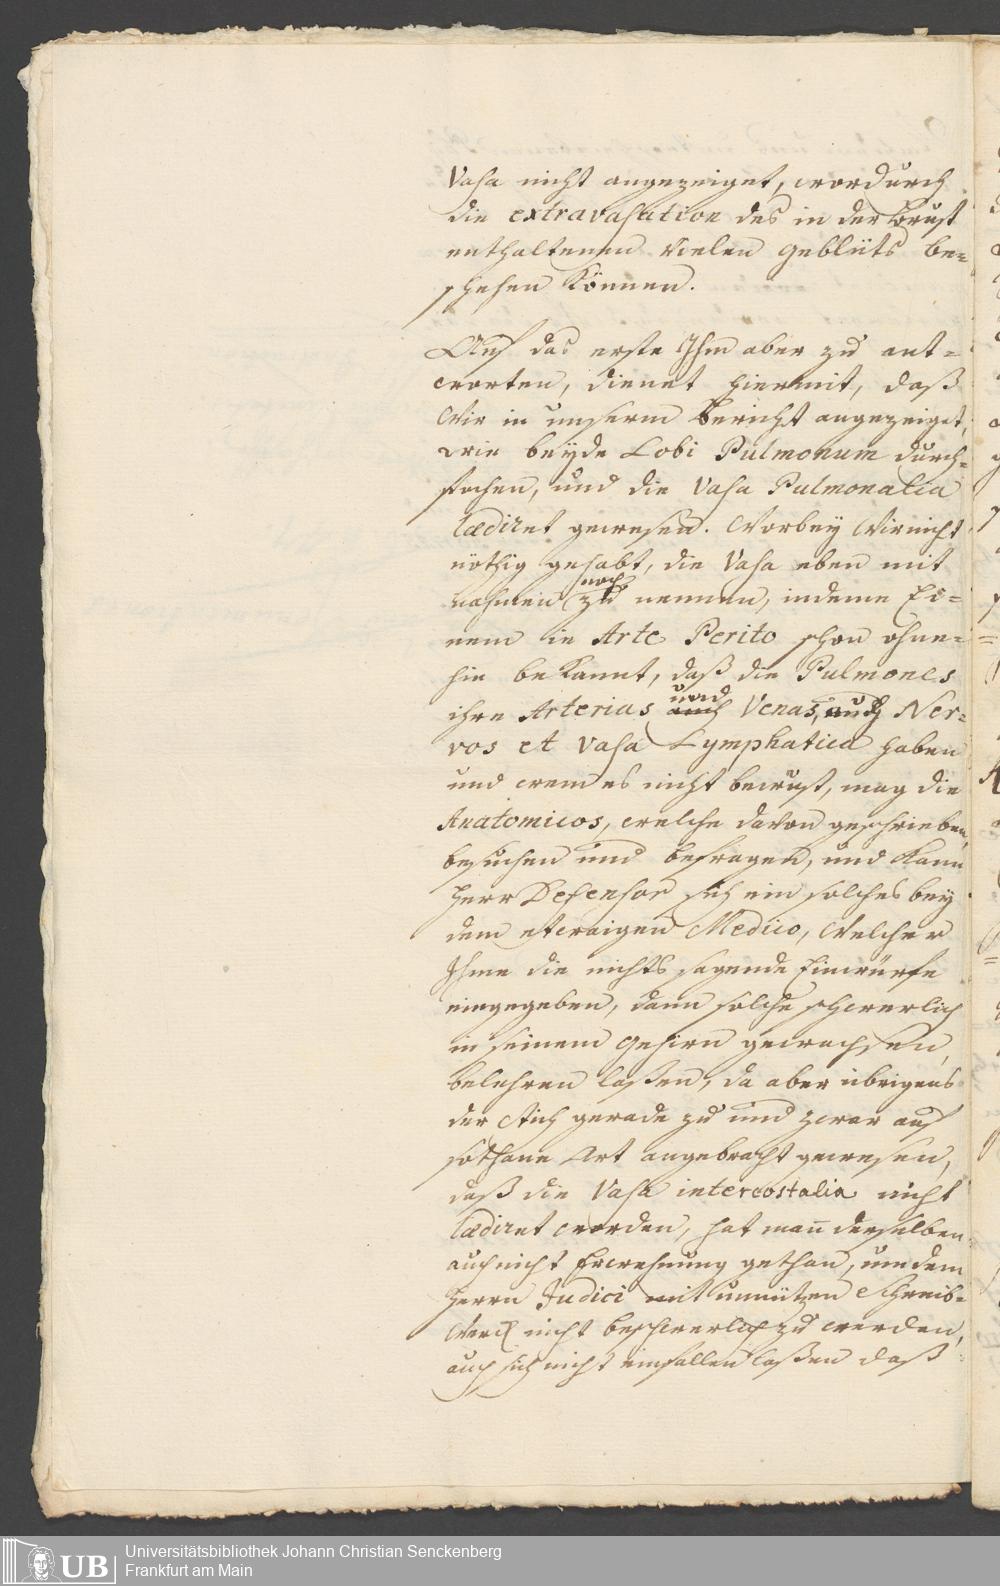 Vasa nicht angezeiget, wordurch
die extravasation des in der Brust
enthaltenen vielen Geblüts be-
schehen können.
Auf das erste Ihm aber zu ant-
worten, dienet hiermit, daß
Wir in unserm Bericht angezeiget,
wie beyde Lobi Pulmonum durch-
stochen, und die Vasa Pulmonalia
lædiret gewesen. Worbey Wir nicht
nöthig gehabt, die Vasa eben mit
noch
nahmen zu nennen, indeme Ei-
nem in Arte Perito schon ohne-
hin bekannt, daß die Pulmones
und
ihre Arterias auch Venas, auch Ner-
vos et Vasa Lymphatica haben
und wem es nicht bewust, mag die
Anatomicos, welche davon geschrieben,
besuchen und befragen, und kann
Herr Defensor sich ein solches bey
dem etwaigen Medico, Welcher
Ihme die nichts sagende Einwürfe
eingegeben, dann solche schwerlich
in seinem Gehirn gewachsen,
belehren laßen, da aber übrigens
der Stich gerade zu und zwar auf
sothane Art angebracht gewesen,
daß die Vasa intercostalia nicht
lædiret worden, hat man derselben
auch nicht Erwehnung gethan, um dem
Herrn Judici mit unnützen Schreib-
Werck nicht beschwerlich zu werden,
auch sich nicht einfallen laßen daß
UB
Universitätsbibliothek Johann Christian Senckenberg
Frankfurt am Main